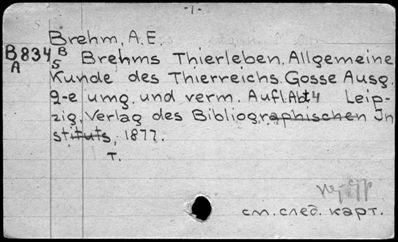 -1-
Brehm, A.E.
B834 B/5 Brehms Thierleben. Allgemeine
A Kunde des Thierreichs. Gosse Ausg.
2-e umg. und verm. Aufl. Abt 4 Leip-
zig, Verlag des Bibliographischen In
stituts, 1877.
T.
см. след. карт.